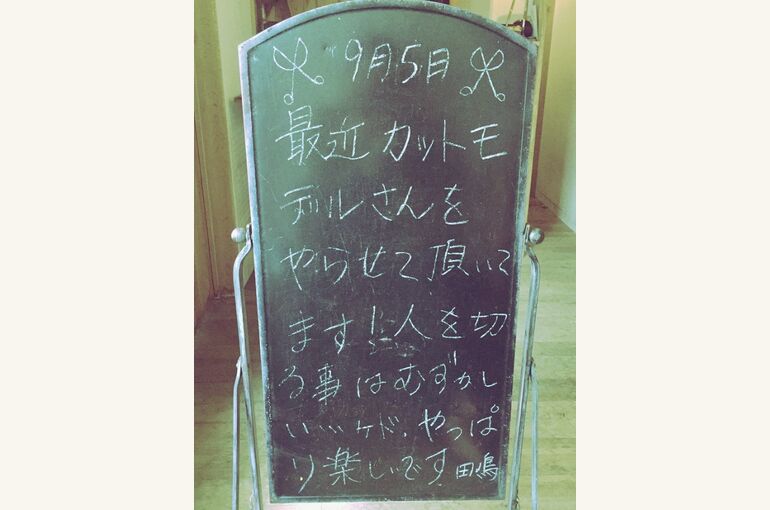 9月5日
最近カットモ
デルさんを
やらせて頂いて
ます！人を切
る事はむずかし
い…ケド、やっぱ
り楽しいです 田嶋